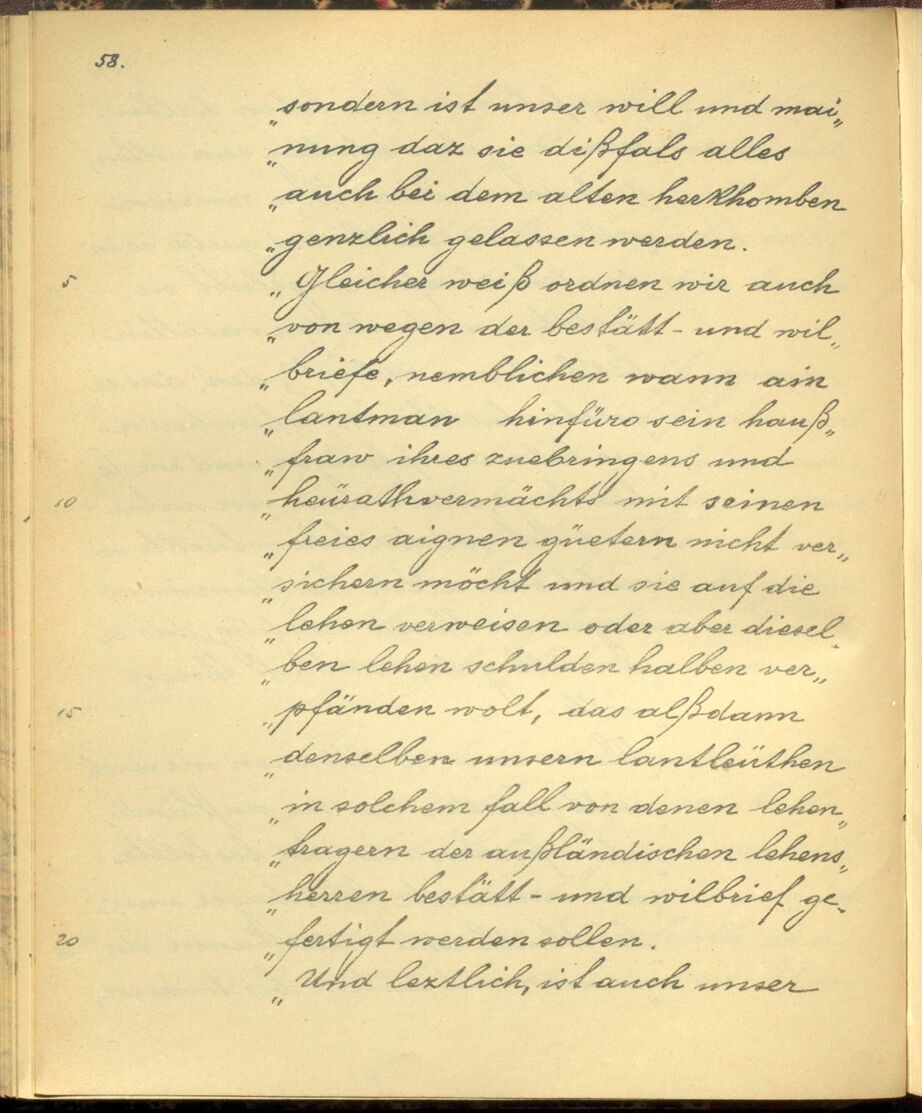 58.
„sondern ist unser will und mai„
„nung daz sie dißfals alles
„auch bei dem alten herkhomben
„genzlich gelassen werden.
5 „Gleicher weiß ordnen wir auch
„von wegen der bestätt- und wil„
„briefe, nemblichen wann ain
„lantman hinfüro sein hauß„
„fraw ihres zuebringens und
10 „heürathvermächts mit seinen
„freies aignen güetern nicht ver„
„sichern möcht und sie auf die
„lehen verweisen oder aber diesel„
„ben lehen schulden halben ver„
15 „pfänden wolt, das alßdann
„denselben unsern lantleüthen
„in solchem fall von denen lehen„
„tragern der außländischen lehens„
„herren bestätt- und wilbrief ge„
20 „fertigt werden sollen.
„Und leztlich, ist auch unser